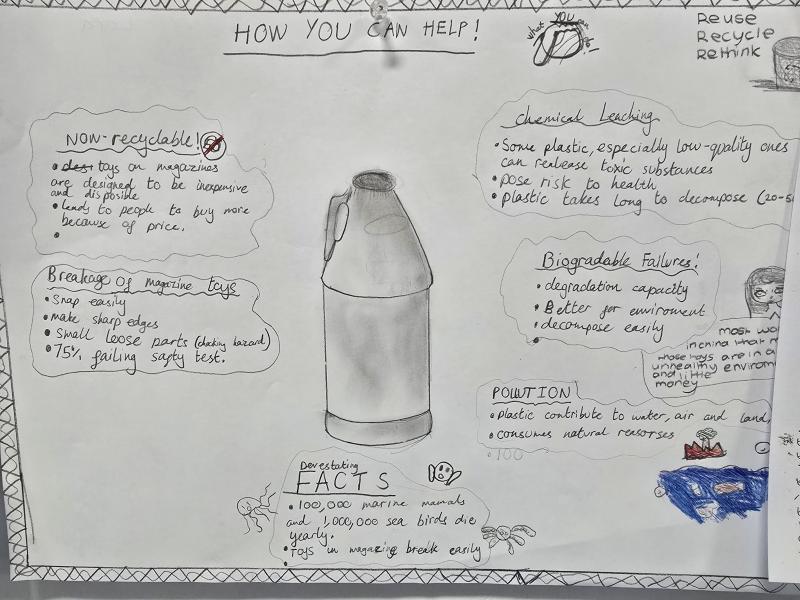 HOW YOU CAN HELP!
what YOU can do!
Reuse
Recycle
Rethink
NON-recyclable!
• toys on magazines
are designed to be inexpensive
and disposible
• leads to people to buy more
because of price.
Breakage of magazine toys
• Snap easily
• make sharp edges
• Small loose parts (chocking hazard)
• 75% failing safty test.
Chemical Leaching
• Some plastic, especially low-quality ones
can realease toxic substances
• pose risk to health
• plastic takes long to decompose (20-50
Biogradable Failures!
• degradation capacity
• Better for enviroment
• decompose easily
most wo
in china that m
those toys are in a
unhealthy envirom
and little
money
POLLUTION
• plastic contribute to water, air and land,
• consumes natural reasorses
• 100
Devestating
FACTS
• 100,000 marine mamals
and 1,000,000 sea birds die
yearly.
• Toys in magazine break easily